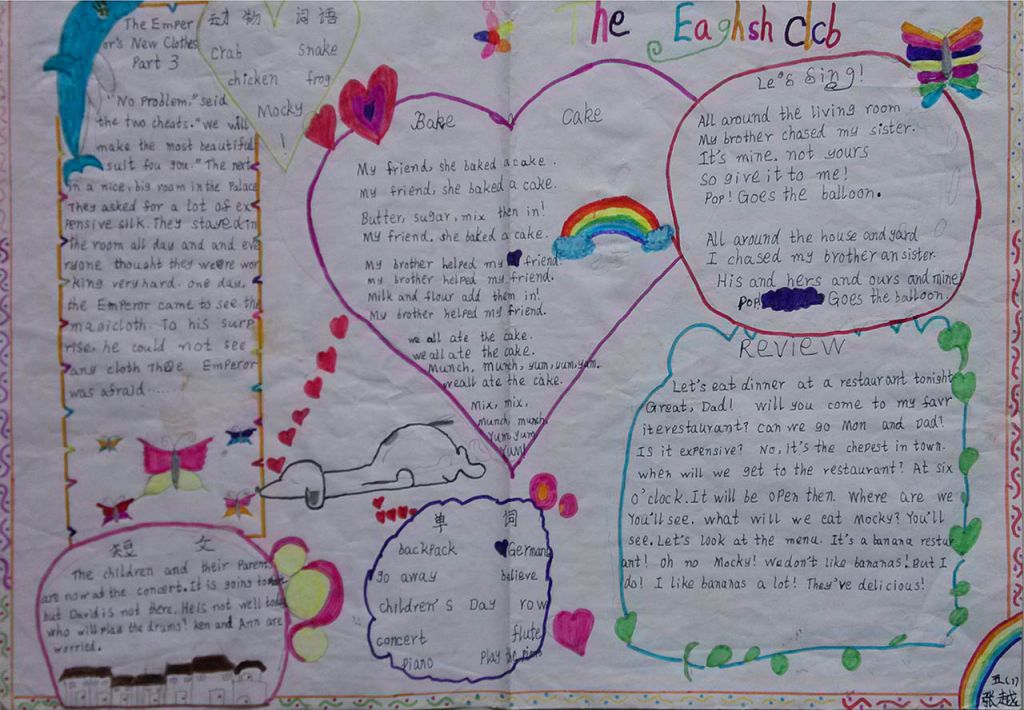 The Eaghsh clcb
The Emper
or's New Clothes
Part 3
"No Problem," seid
the two cheats. "we will
make the most beautiful
suit fou you." The next
in a nice, big room in the Palace
They asked for a lot of ex
Pensive silk. They stayed in
the room all day and and eve
ryone thought they weere wor
king very hard. one day,
the Emperor came to see the
magicloth. To his surp
rise, he could not see
any cloth The Emperor
was afraid......
动物 词语
Crab snake
chicken frog
Mocky
!
Bake a Cake
My friend, she baked a cake.
my friend, she baked a cake.
Butter, sugar, mix then in!
My friend, she baked a cake.
My brother helped my friend.
my brother helped my friend.
Milk and flour add them in!
My brother helped my friend.
we all ate the cake.
we all ate the cake.
Munch, munch, yum, yum, yum.
we all ate the cake.
Mix, mix,
munch, munch
Yum, yum
Yum!
Le's Sing!
All around the living room
My brother chased my sister.
It's mine, not yours
So give it to me!
Pop! Goes the balloon.
All around the house and yard
I chased my brother an sister.
His and hers and ours and mine
Pop! Goes the balloon.
Review
Let's eat dinner at a restaurant tonight
Great, Dad! will you come to my favr
iterestaurant? Can we go Mon and Dad?
Is it expensive? No, it's the chepest in town.
when will we get to the restaurant? At six
o'clock. It will be open then. where are we
You'll see. what will we eat Mocky? You'll
see. Let's look at the menu. It's a banana restur
ant! oh no Mocky! We don't like bananas! But I
do! I like bananas a lot! They've delicious!
短 文
The children and their Parents
are now at the concert. It is going to
but David is not there. He is not well today
who will play the drums? Ken and Ann are
worried.
单 词
backpack German
go away believe
children's Day row
concert flute
piano Play the piano
五(1)
张越